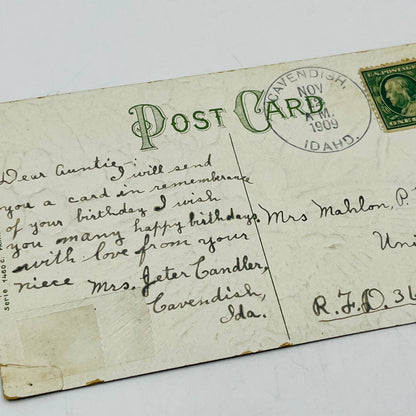 POST CARD
CAVENDISH,
NOV
A.M.
1909
IDAHO.
U.S. POSTAGE
ONE
Dear Auntie;
I will send
you a card in remembrance
of your birthday I wish
you many happy birthdays
with love from your
niece Mrs. Jeter Candler,
Cavendish,
Ida.
Mrs Mahlon, P.
Uni
R.F.D. 36
Serie 1480 C.